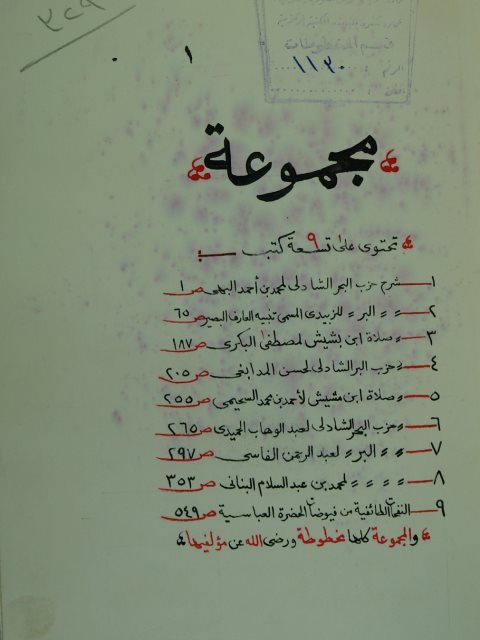 ٣٢٩
١
قسم المخطوطات
الرقم ١١٣٠
مجموعة
تحتوى على ٩ تسعة كتب
١ــ شرح حزب البحر الشاذلى لمحمد بن أحمد البهى ص ١
٢ــ 〃 〃 البر 〃 للزبيدى المسمى تنبيه العارف البصير ص ٦٥
٣ــ 〃 صلاة ابن بشيش لمصطفى البكرى ص ١٨٧
٤ــ 〃 حزب البر الشاذلى لحسن المدابغى ص ٢٠٥
٥ــ 〃 صلاة ابن مشيش لأحمد بن محمد السحيمى ص ٢٥٥
٦ــ 〃 حزب البحر الشاذلى لعبد الوهاب الحميدى ص ٢٦٥
٧ــ 〃 〃 البر 〃 لعبد الرحمن الفاسى ص ٢٩٧
٨ــ 〃 〃 〃 〃 لمحمد بن عبد السلام البنانى ص ٣٥٣
٩ــ النفحات الطائفية من فيوضات الحضرة العباسية ص ٥٤٩
والمجموعة كلها مخطوطة ورضى الله عن مؤلفيها